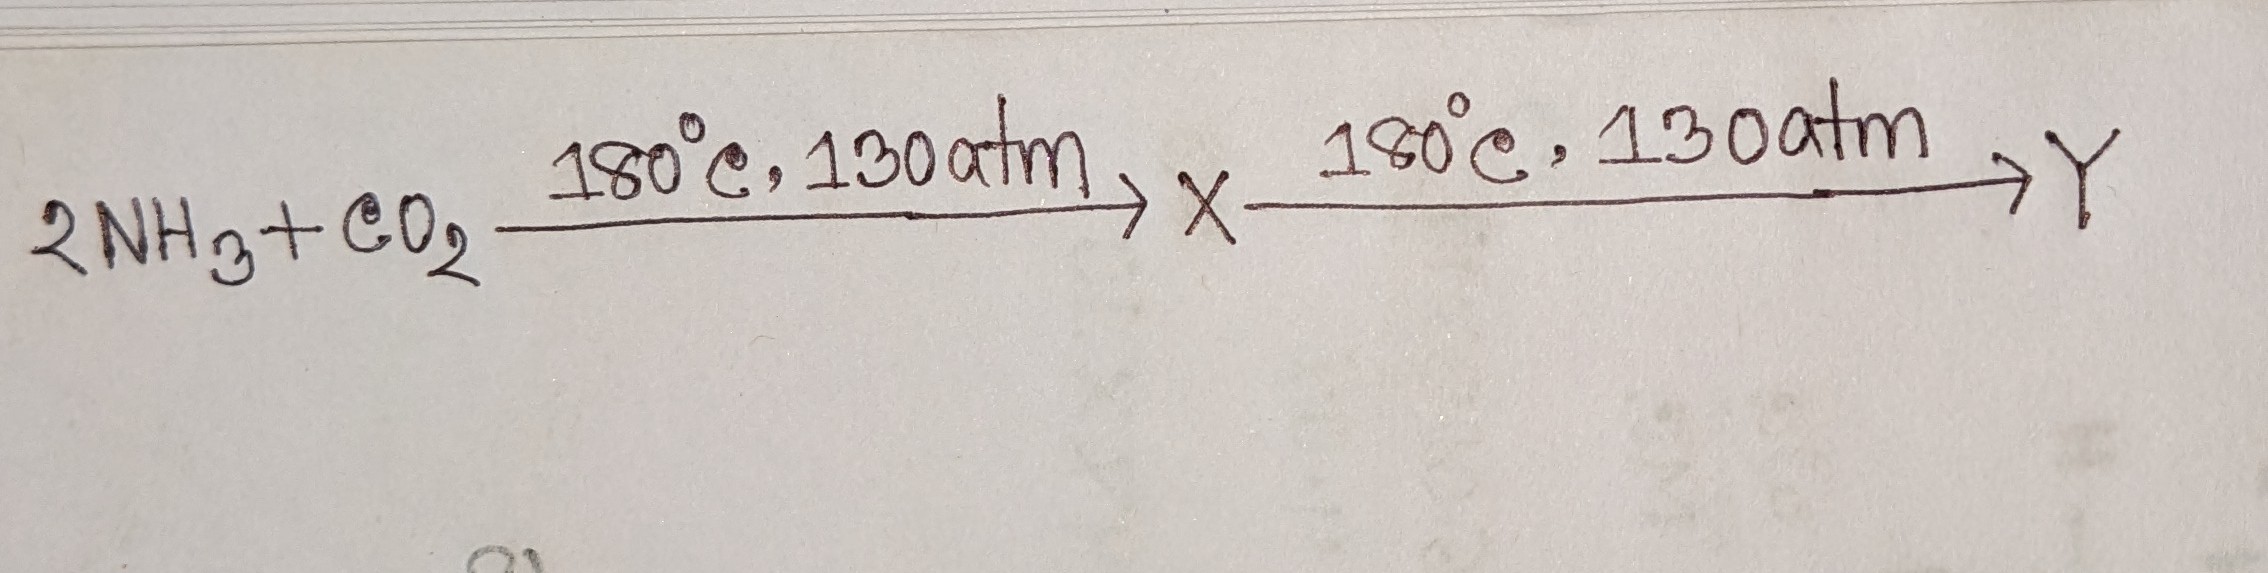 2NH₃ + CO₂ 180°C, 130atm → X 180°C, 130atm → Y